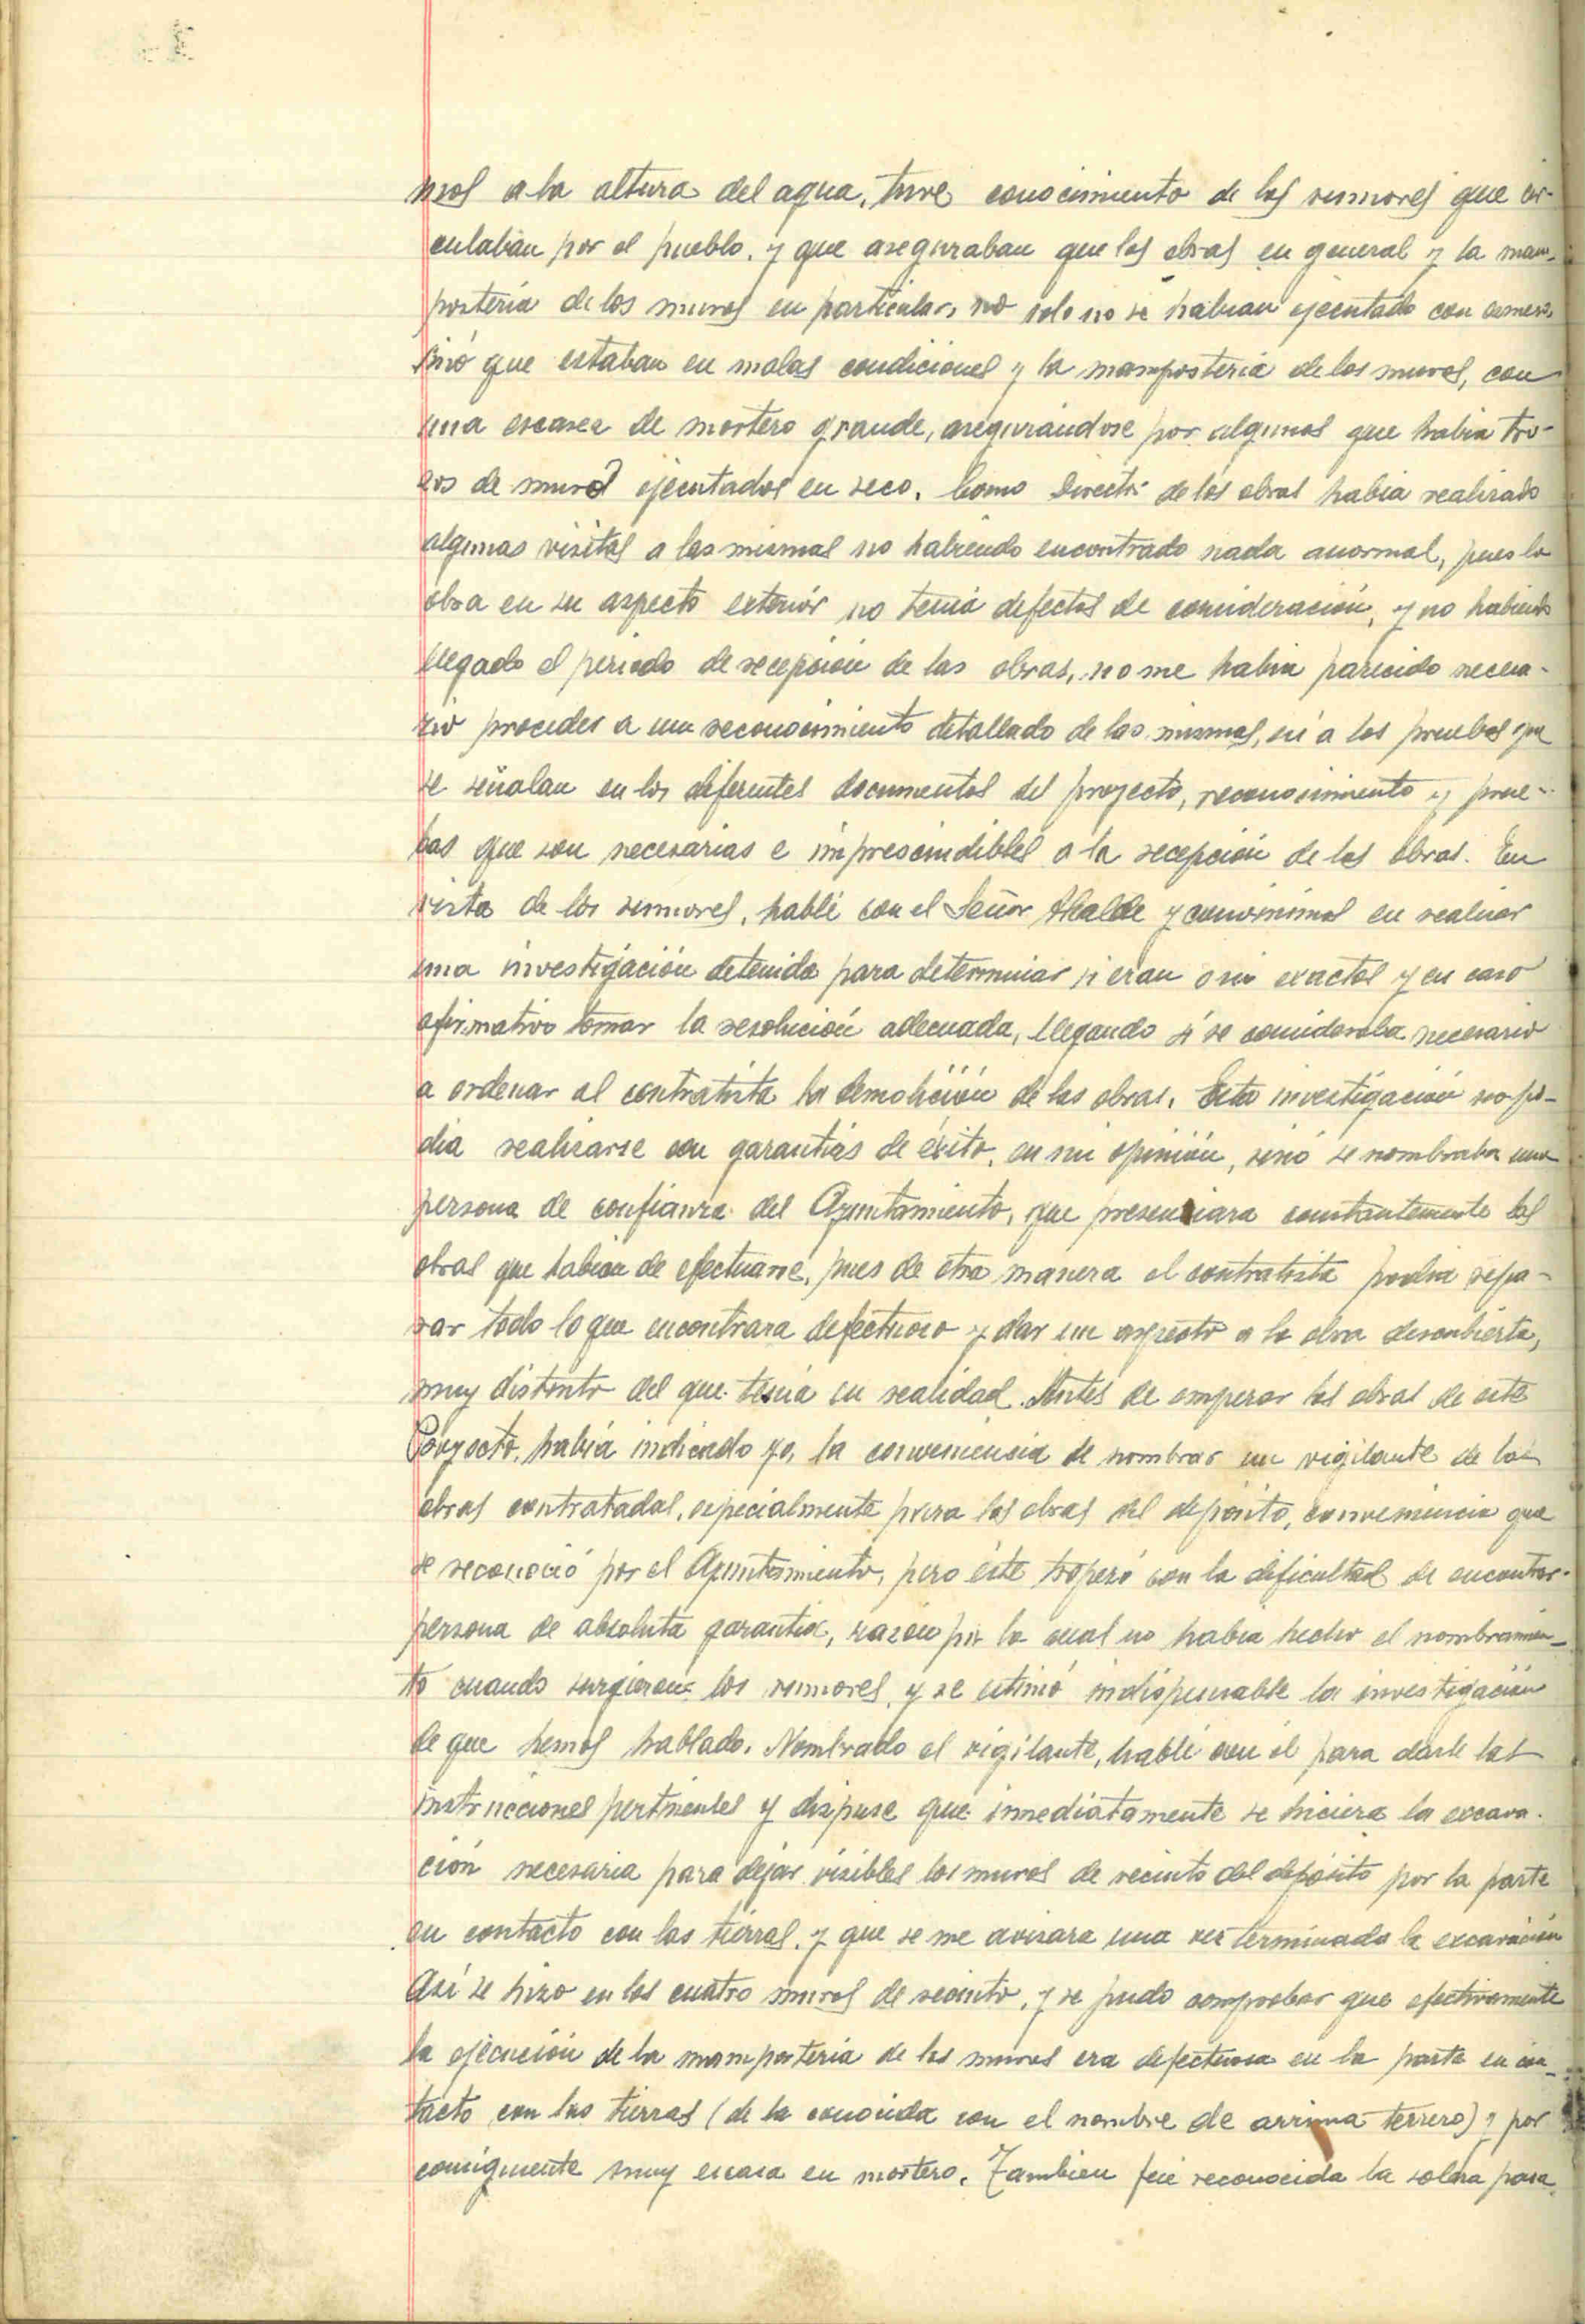 mos a la altura del agua, tuve conocimiento de los rumores que cir-
culaban por el pueblo, y que aseguraban que las obras en general y la mam-
posteria de los muros en particular, no solo no se habian ejecutado con esmero,
sinó que estaban en malas condiciones y la mamposteria de los muros, con
una escasez de mortero grande, asegurándose por algunos que habia tro-
zos de muro ejecutados en seco. Como Director de las obras habia realizado
algunas visitas a las mismas no habiendo encontrado nada anormal, pues la
obra en su aspecto exteriór no tenia defectos de consideración, y no habiendo
llegado el periodo de recepción de las obras, no me habia parecido necesa-
rio proceder a un reconocimiento detallado de las mismas, ni a las pruebas que
se señalan en los diferentes documentos del proyecto, reconocimiento y prue-
bas que son necesarias e imprescindibles a la recepción de las obras. En
vista de los rumores, hablé con el Señor Alcalde y convinimos en realizar
una investigación detenida para determinar si eran o no exactos y en caso
afirmativo tomar la resolución adecuada, llegando si se consideraba necesario
a ordenar al contratista la demolición de las obras. Esta investigación no po-
dia realizarse con garantias de éxito, en mi opinión, sinó se nombraba una
persona de confianza del Ayuntamiento, que presenciara constantemente las
obras que habian de efectuarse, pues de otra manera el contratista podria repa-
rar todo lo que encontrara defectuoso y dar un aspecto a la obra descubierta,
muy distinto del que tenia en realidad. Antes de empezar las obras de este
Proyecto, habia indicado yo, la conveniencia de nombrar un vigilante de las
obras contratadas, especialmente para las obras del depósito, conveniencia que
se reconoció por el Ayuntamiento, pero éste tropezó con la dificultad de encontrar
persona de absoluta garantia, razón por la cual no habia hecho el nombramien-
to cuando surgieron los rumores, y se estimó indispensable la investigación
de que hemos hablado. Nombrado el vigilante, hablé con él para darle las
instrucciones pertinentes y dispuse que inmediatamente se hiciera la excava-
ción necesaria para dejar visibles los muros de recinto del depósito por la parte
en contacto con las tierras, y que se me avisara una vez terminada la excavación
Asi se hizo en los cuatro muros de recinto, y se pudo comprobar que efectivamente
la ejecución de la mamposteria de los muros era defectuosa en la parte en con-
tacto con las tierras (de la conocida con el nombre de arrima terrero) y por
consiguiente muy escasa en mortero. Tambien fué reconocida la solera para